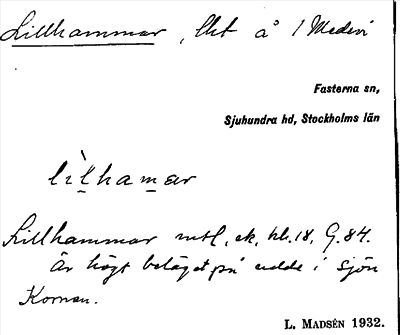 Lillhammar, lht å 1 Medevi
Fasterna sn,
Sjuhundra hd, Stockholms län
lìlhamar
Lillhammar mtl, ek, hbl. 18, G. 84.
Är högt beläget på udde i sjön
Kornan.
L. MADSÉN 1932.